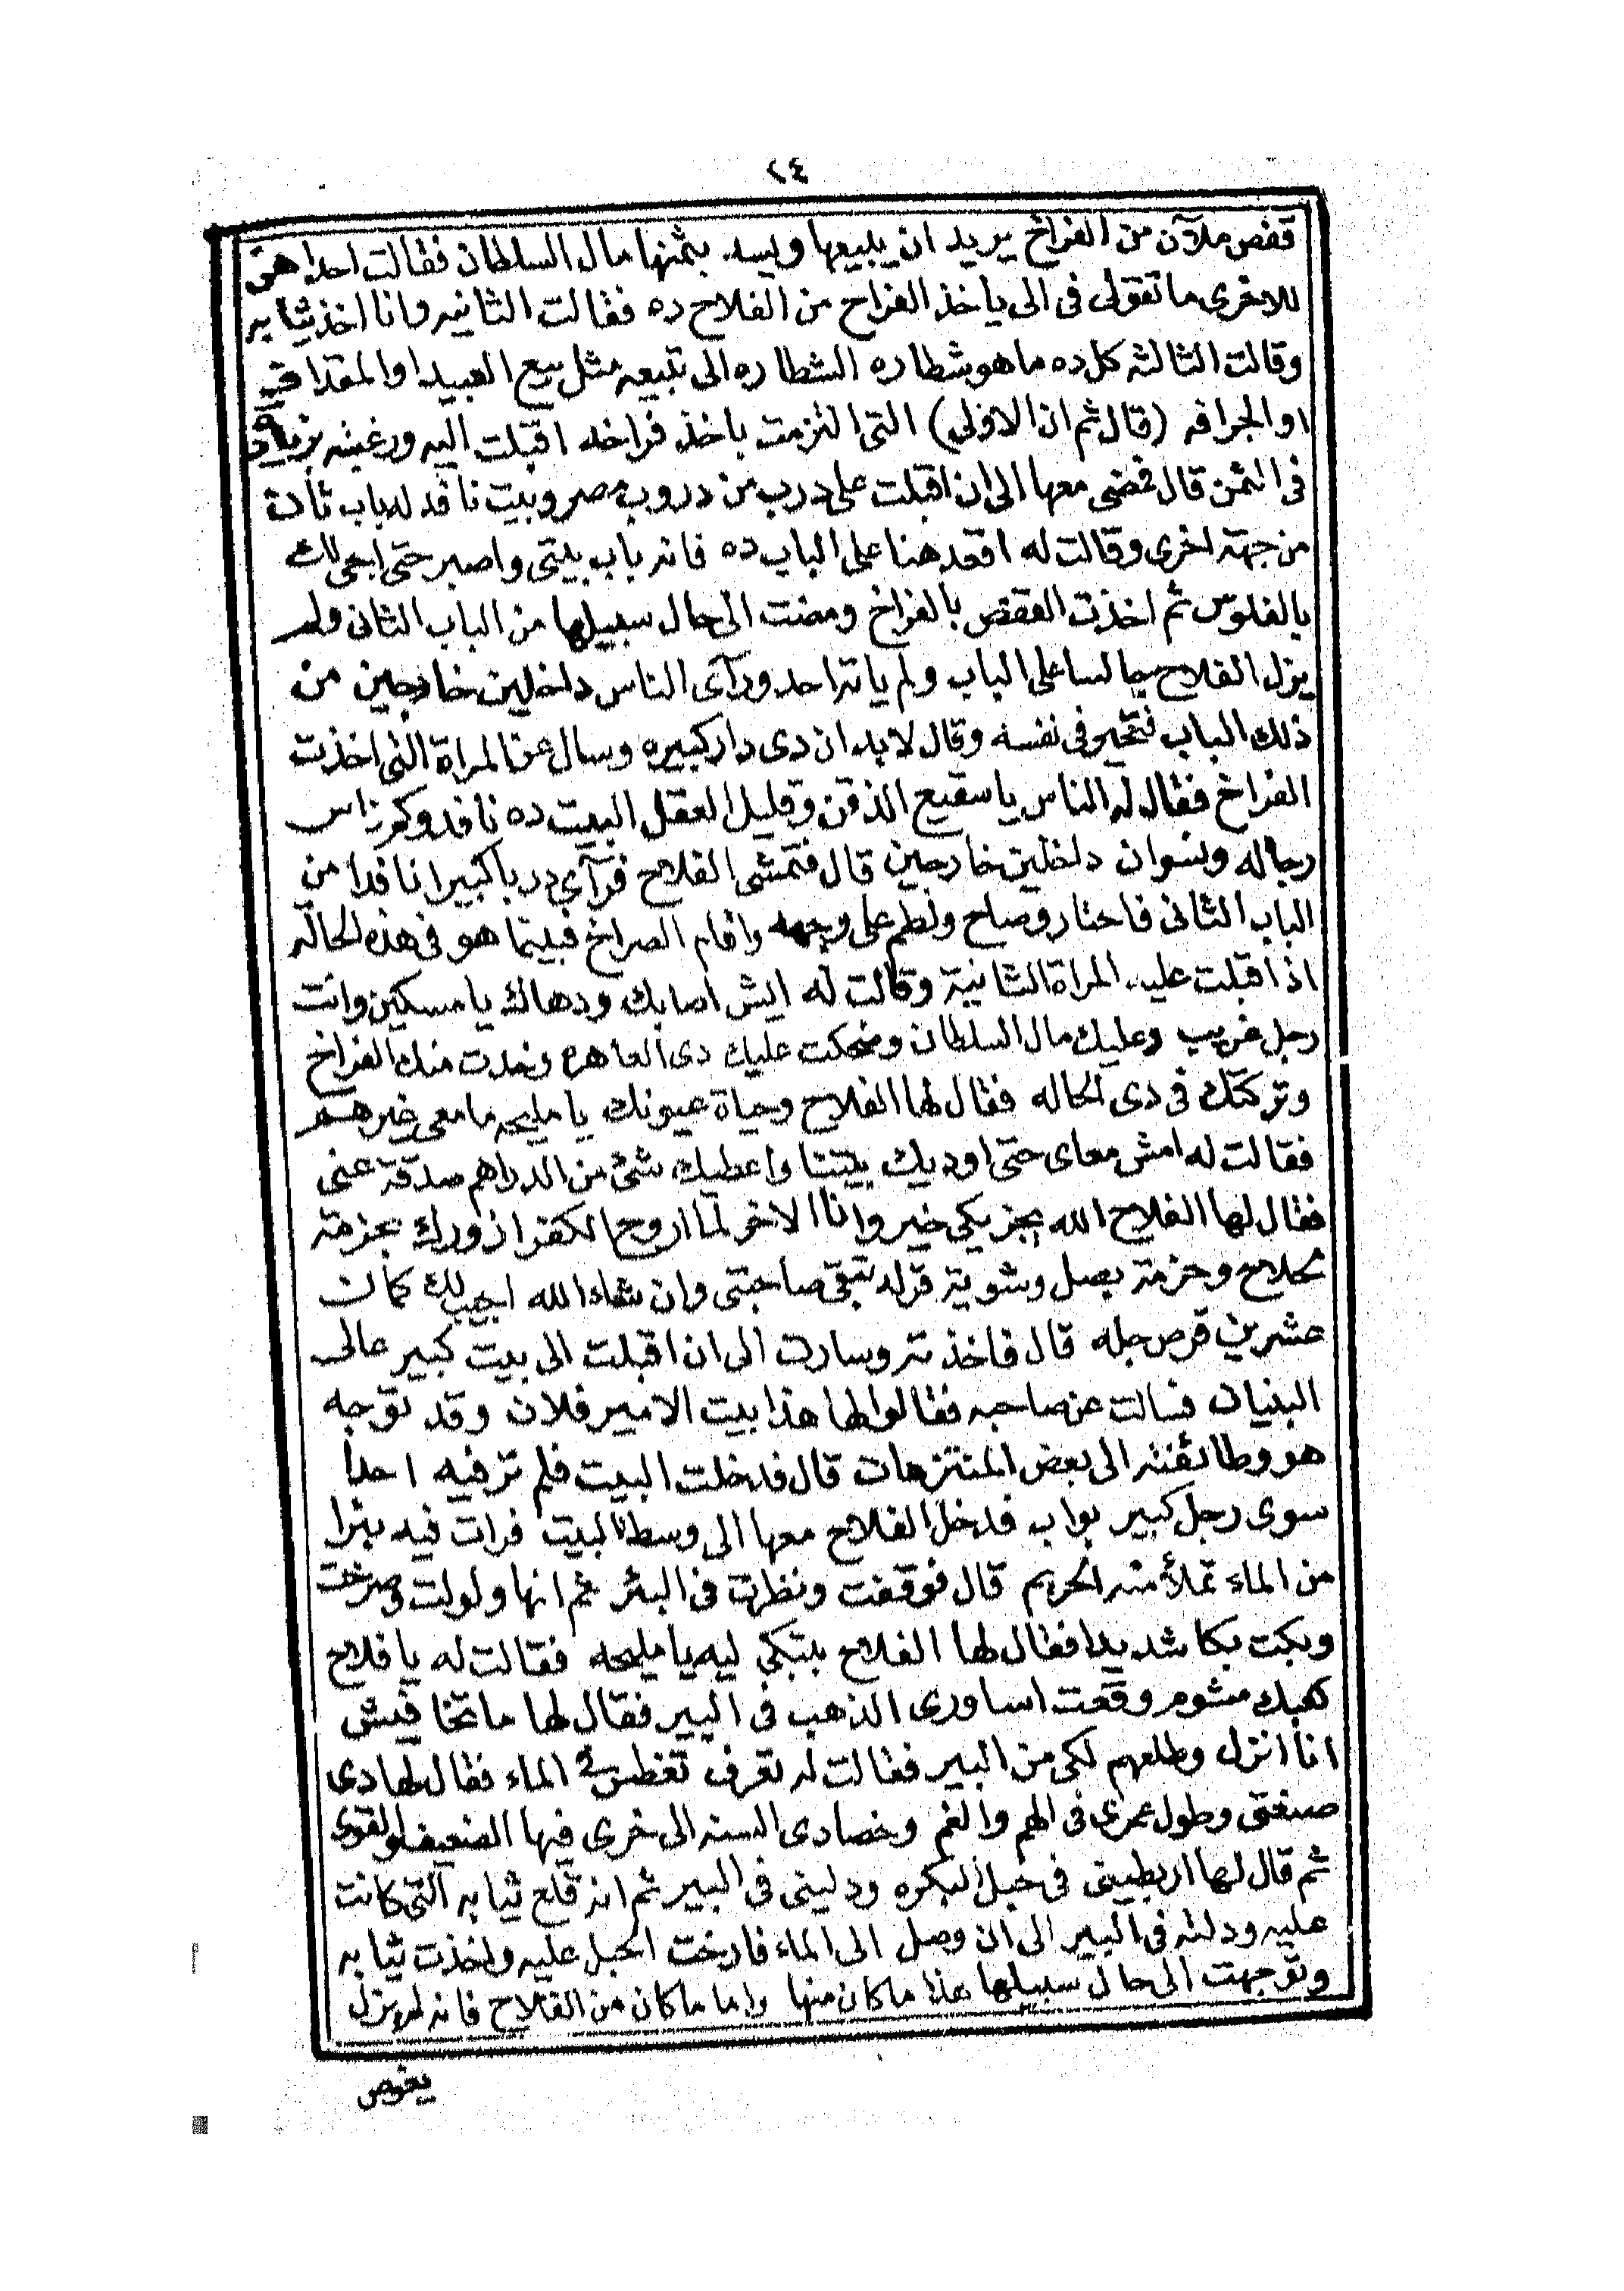 ٢٤
قفص ملآن من الفراخ يريد ان يبيعها ويسد بثمنها مال السلطان فقالت احداهن
للاخرى ما تقولى فى الى ياخذ الفراخ من الفلاح ده فقالت الثانيه وانا اخذ ثيابه
وقالت الثالثه كل ده ما هو شطاره الشطاره الى تبيعه مثل بيع العبيد او المقداف
او الجرافه (قال ثم ان الاولى) التى التزمت باخذ فراخه اقبلت اليه ورغبته بزياده
فى الثمن قال فمضى معها الى ان اقبلت على درب من دروب مصر وبيت نافد له باب تان
من جهة اخرى وقالت له اقعد هنا على الباب ده فانه باب بيتى واصبر حتى اجى لك
بالفلوس ثم اخذت القفص بالفراخ ومضت الى حال سبيلها من الباب الثانى ولم
يزل الفلاح جالسا على الباب ولم ياته احد ورآى الناس داخلين خارجين من
ذلك الباب فتحير فى نفسه وقال لا بد ان دى دار كبيره وسال عن المراة التى اخذت
الفراخ فقال له الناس يا سقيع الذقن وقليل العقل البيت ده نافد وكم ناس
رجاله ونسوان داخلين خارجين قال فتمشى الفلاح فرآى دربا كبيرا نافدا من
الباب الثانى فاحتار وصاح ولطم على وجهه واقام الصراخ فبينما هو فى هذه الحاله
اذ اقبلت عليه المراة الثانية وقالت له ايش اصابك ودهاك يا مسكين وانت
رجل غريب وعليك مال السلطان وضحكت عليك دى العاهره وخدت منك الفراخ
وتركتك فى دى الحاله فقال لها الفلاح وحياة عيونك يا مليحه ما معى غيرهم
فقالت له امش معاى حتى اوديك بيتنا واعطيك شئ من الدراهم صدقة عنى
فقال لها الفلاح الله يجزيكى خير وانا الاخر لما اروح الكفر ازورك بحزمة
شحلاح وحزمة بصل وشوية قرله تبقى صاحبتى وان شاء الله اجيب لك كمان
عشرين قرص جله قال فاخذته وسارت الى ان اقبلت الى بيت كبير عالى
البنيان فسالت عن صاحبه فقالوا لها هذا بيت الامير فلان وقد توجه
هو وطائفته الى بعض المنتزهات قال فدخلت البيت فلم تر فيه احدا
سوى رجل كبير بواب فدخل الفلاح معها الى وسط البيت فرات فيه بئرا
من الماء تملأ منه الحريم قال فوقفت ونظرت فى البئر ثم انها ولولت وصرخت
وبكت بكا شديدا فقال لها الفلاح بتبكى ليه يا مليحه فقالت له يا فلاح
كعبك مشوم وقعت اساورى الذهب فى البير فقال لها ما تخافيش
انا انزل وطلعهم لكى من البير فقالت له تعرف تغطس فى الماء فقال لها دى
صنعتى وطول عمرى فى الهم والغم وخصا دى السنه الى خرى فيها الضعيف والقوى
ثم قال لها اربطينى فى حبل البكره ودلينى فى البير ثم انه قلع ثيابه التى كانت
عليه ودلته فى البير الى ان وصل الى الماء فارخت الحبل عليه واخذت ثيابه
وتوجهت الى حال سبيلها هذا ما كان منها واما ما كان من الفلاح فانه لم يزل
يغوص